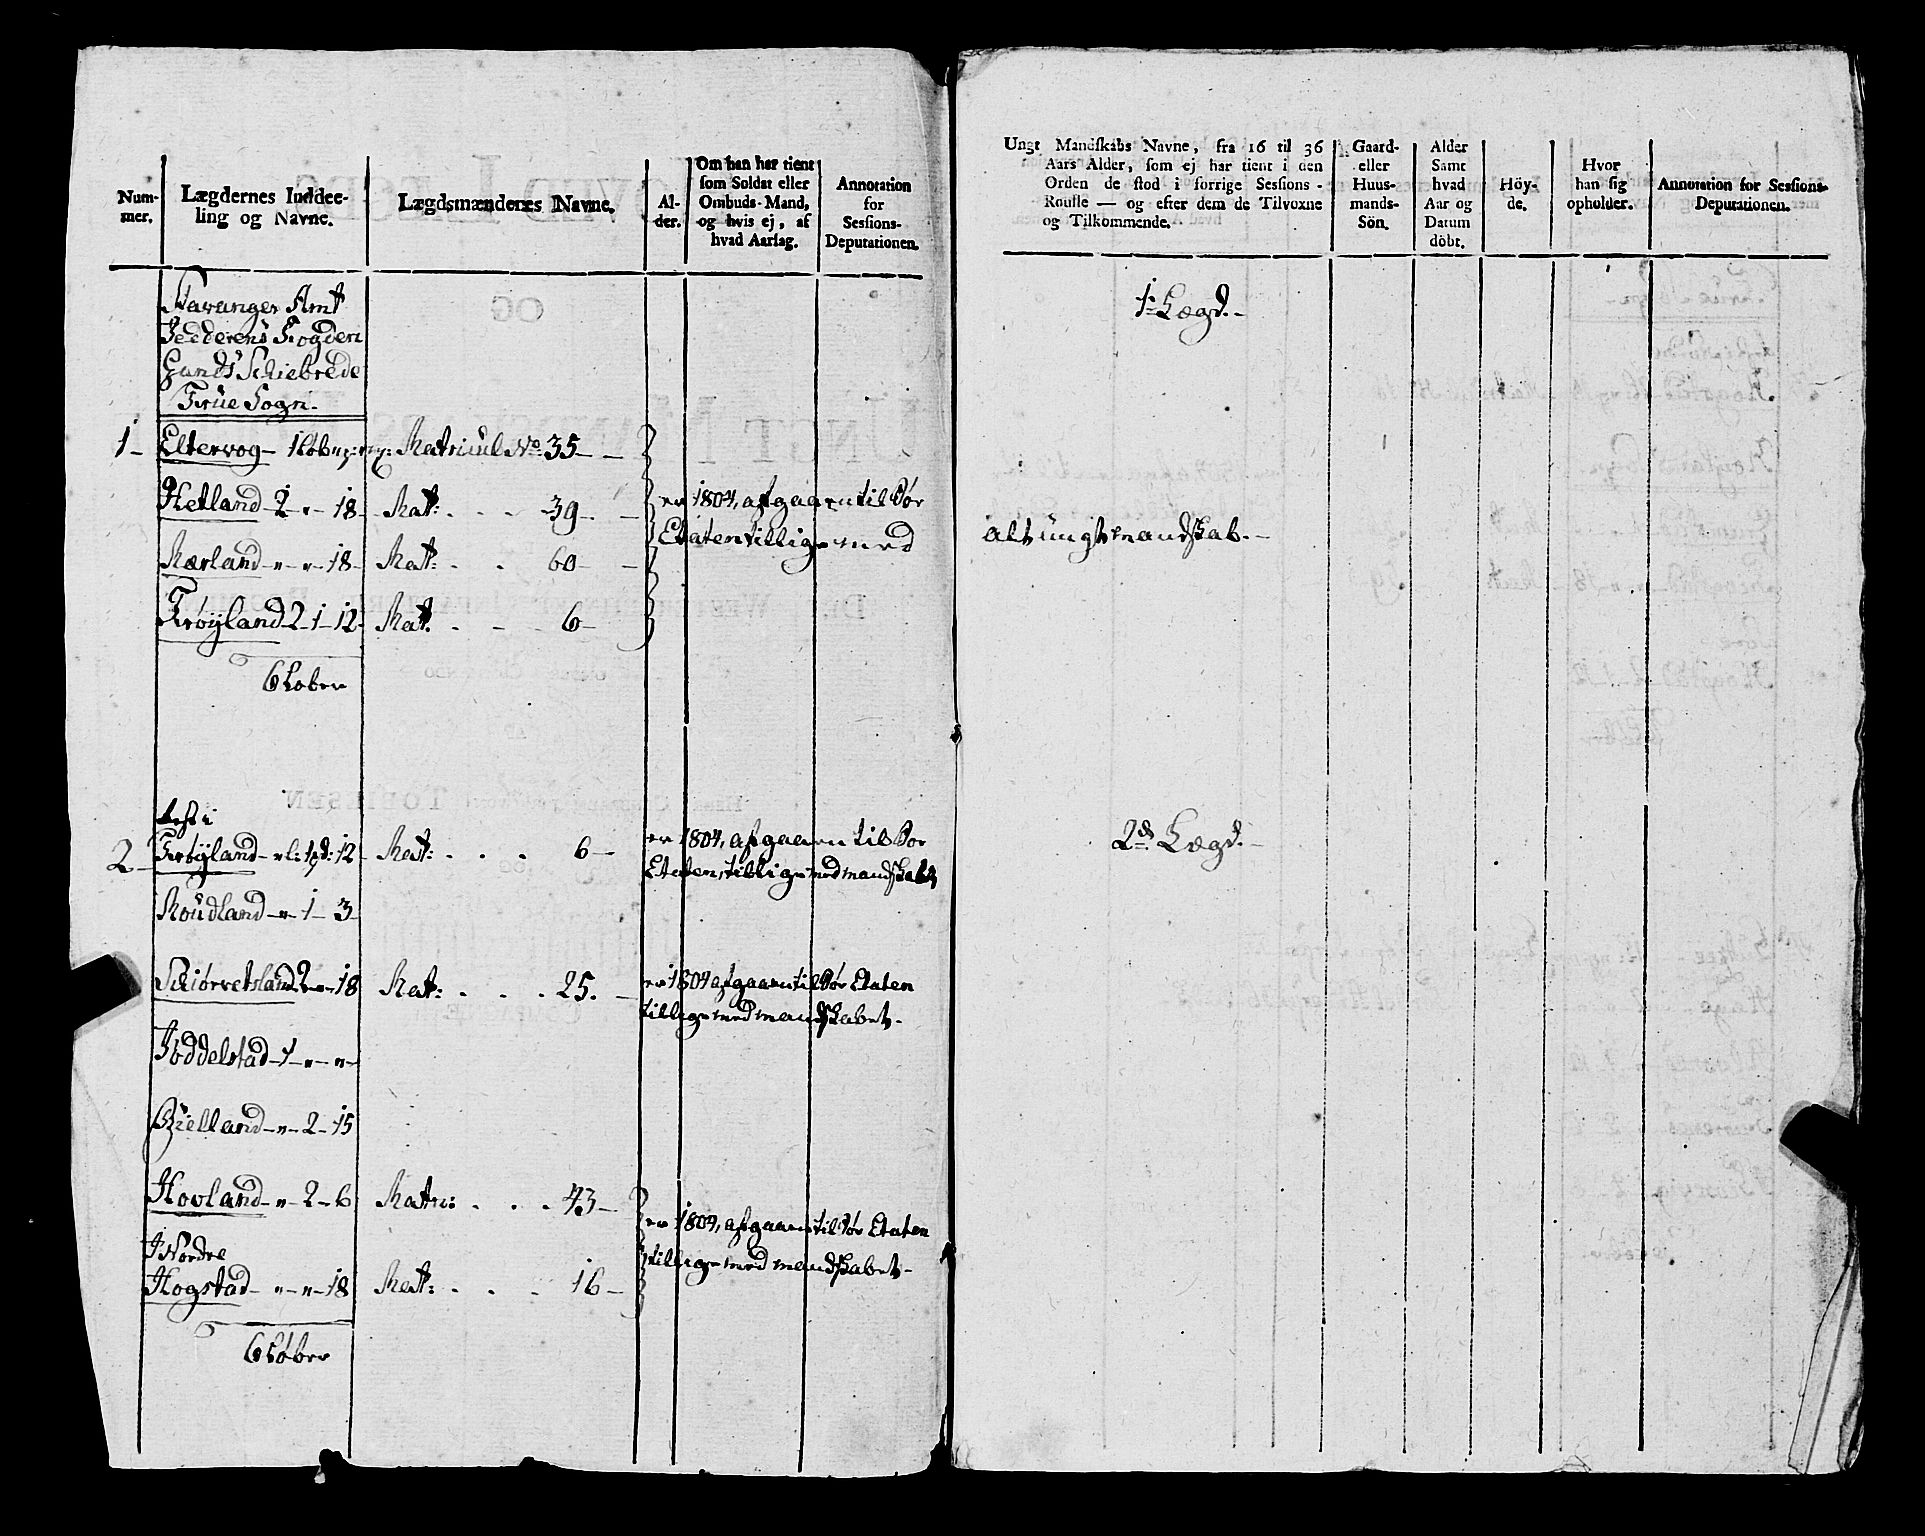 Num-
mer.
Lægdernes Inddee-
ling og Navne.
Lægdsmændenes Navne.
Al-
der.
Om han har tient
som Soldat eller
Ombuds-Mand,
og hvis ej, af
hvad Aarsag.
Annotation
for
Sessions-
Deputationen.
Stavanger Amt
Jedderens Fogderi
Gands Schiebrede
Frue Sogn.
1 - Eltervog - 1 Matricul No 35 -
Hetland - 2 " - 18 - Mat: . . . 39 -
Mærland - " - " - 18 - Mat: . . 60 -
Frøÿland - 2 - 1 - 12 - Mat. . . 6 -
er 1804, afgaaen til Søe
Etaten tillige med
6 Løber
2 - Frøÿland - 12 - Mat: . . . 6 -
er 1804, afgaaen til Søe
Etaten, tillige med mandskabet
Roüdland - " - 1 - 3 -
Schiørretsland 2 - " - 18 Mat: . . . 25. -
er 1804 afgaaen til Søe Etaten
tillige med mandskabet -
Foddelstad - 1 - " - " -
Gielland - " - 2 - 15
Hovland - " - 2 - 6 Matr: . . . 43 -
Nordre
Hogstad - " - " - 18 Mat: . . . 16 -
er 1804, afgaaen til Søe Etaten
tillige med mandskabet -
6 Løber
Ungt Mandskabs Navne, fra 16 til 36
Aars Alder, som ej har tient i den
Orden de stod i forrige Sessions-
Roulle — og efter dem de Tilvoxne
og Tilkommende.
Gaard-
eller
Huus-
mands-
Sön.
Alder
Samt
hvad
Aar og
Datum
döbt.
Höy-
de.
Hvor
han sig
opholder.
Annotation for Sessions-
Deputationen.
1te Lægd. -
alt ungt mandskab. -
2d. Lægd. -